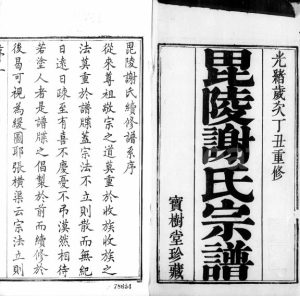 光緒歲次丁丑重修
毘陵謝氏宗譜
寶樹堂珍藏
毘陵謝氏續修譜系序
從來尊祖敬宗之道莫重於收族收族之
法莫重於譜牒蓋宗法不立則散而無紀
日遠日疎至有喜不慶憂不弔漠然相待
若塗人者是譜牒之倡製於前而續修於
後曷可視為緩圖耶張橫渠云宗法立則